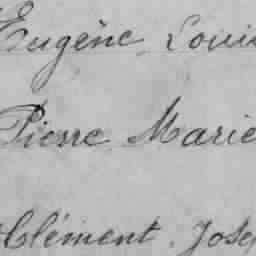 Eugène Louis
Pierre Marie
Clément Jose